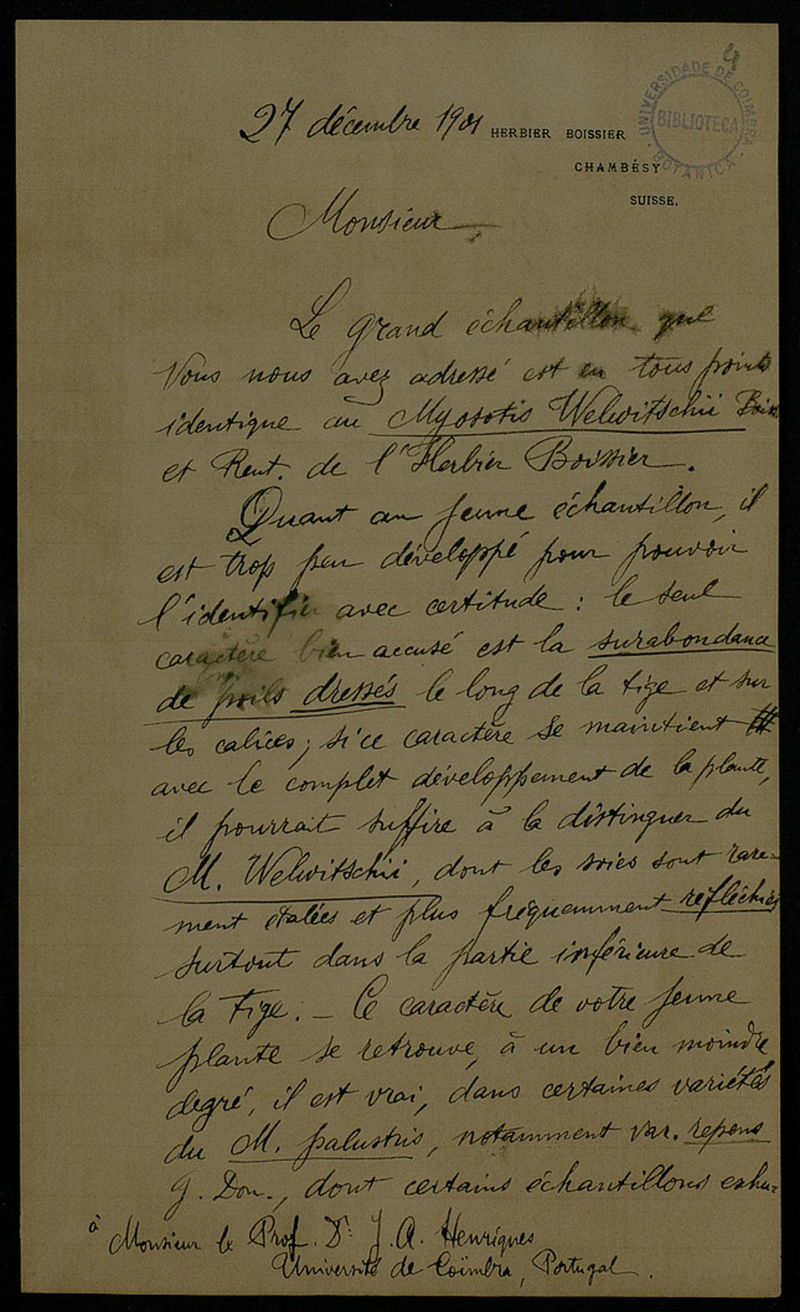 9
UNIVERSIDADE DE COIMBRA
BIBLIOTECA
BOTANICA
27 décembre 1901
HERBIER BOISSIER
CHAMBÉSY
SUISSE.
Monsieur
Le grand échantillon que
vous nous avez adressé est en tous points
identique au Myosotis Welwitschii Boiss.
et Reut. de l'Herbier Boissier.
Quant au jeune échantillon, il
est trop peu développé pour pouvoir
l'identifier avec certitude : le seul
caractère bien accusé est la surabondance
de poils dressés le long de la tige et sur
les calices ; si ce caractère se maintient
avec le complet développement de la plante,
il pourrait suffire à la distinguer du
M. Welwitschii, dont les soies sont rare-
ment étalées et plus fréquemment réfléchies
surtout dans la partie inférieure de
la tige. — Ce caractère de votre jeune
plante se retrouve, à un bien moindre
degré, il est vrai, dans certaines variétés
du M. palustris, notamment var. repens
G. Don., dont certains échantillons exhu-
à Monsieur le Prof. Dr. J. A. Henriques
Université de Coïmbra, Portugal.